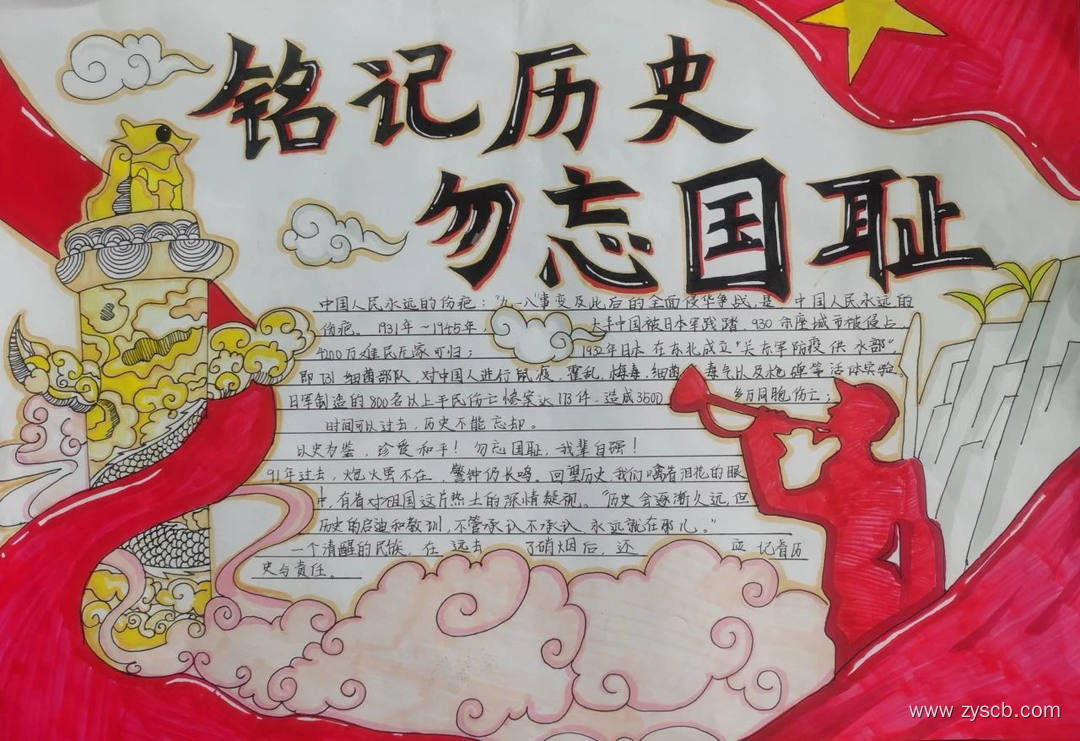 铭记历史
勿忘国耻
中国人民永远的伤疤："九一八"事变及此后的全面侵华争战,是 中国人民永远的
伤疤。1931年~1945年, 大半中国被日本军践踏,930余座城市被侵占,
4200万难民无家可归; 1932年日本在东北成立"关东军防疫供水部"
即731细菌部队,对中国人进行鼠疫、霍乱、梅毒、细菌 毒气以及炮弹等活体实验
日军制造的800名以上平民伤亡惨案达173件.造成3600 多万同胞伤亡;
时间可以过去,历史不能忘却。
以史为鉴,珍爱和平!勿忘国耻,我辈自强!
91年过去,炮火虽不在,警钟仍长鸣。回望历史,我们噙着泪花的眼
中,有着对祖国这片热土的深情凝视。"历史会逐渐久远,但
历史的启迪和教训,不管承认不承认,永远就在那儿。"
一个清醒的民族,在 远去 了硝烟后,还 应 记着历
史与责任。
www.zyscb.com